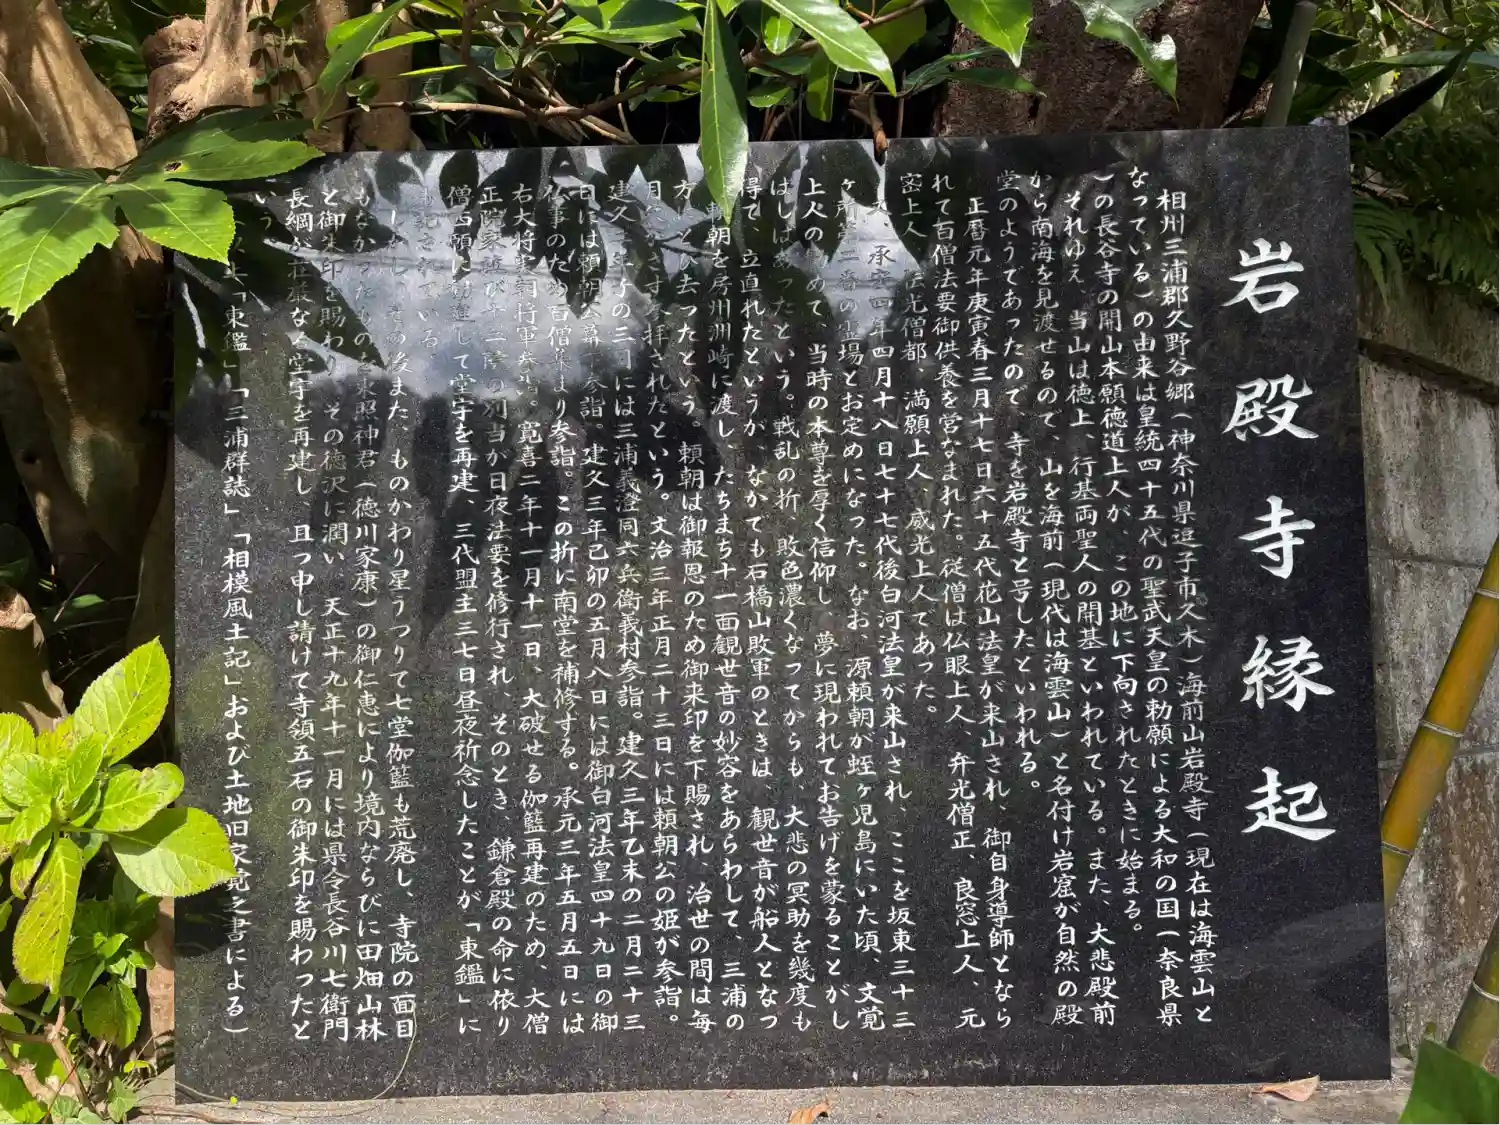 岩殿寺縁起
相州三浦郡久野谷郷(神奈川県逗子市久木)海前山岩殿寺(現在は海雲山と
なっている)の由来は皇統四十五代の聖武天皇の勅願による大和の国(奈良県
)の長谷寺の開山本願徳道上人が、この地に下向されたときに始まる。
それゆえ、当山は徳上、行基両聖人の開基といわれている。また、大悲殿前
から南海を見渡せるので、山を海前(現代は海雲山)と名付け岩窟が自然の殿
堂のようであったので、寺を岩殿寺と号したといわれる。
正暦元年庚寅春三月十七日六十五代花山法皇が来山され、御自身導師となら
れて百僧法要御供養を営なまれた。従僧は仏眼上人、弁光僧正、良窓上人、元
密上人、光僧都、満願上人、威光上人であった。
承安四年四月十八日七十七代後白河法皇が来山され、ここを坂東三十三
ヶ所第二番の霊場とお定めになった。なお、源頼朝が蛭ヶ児島にいた頃、文覚
上人の勧めで、当時の本尊を厚く信仰し、夢に現われてお告げを蒙ることがし
ばしばあったという。戦乱の折、敗色濃くなってからも、大悲の冥助を幾度も
得て、立直れたというが、なかでも石橋山敗軍のときは、観世音が船人となっ
頼朝を房州洲崎に渡し、たちまち十一面観世音の妙容をあらわして、三浦の
方に去ったという。頼朝は御報恩のため御来印を下賜され、治世の間は毎
月かかさず参拝されたという。文治三年正月二十三日には頼朝公の姫が参詣。
建久の三日には三浦義澄同六兵衛義村参詣。建久三年乙未の二月二十三
日には頼朝公幕下参詣。建久三年己卯の五月八日には御白河法皇四十九日の御
仏事のため百僧集まり参詣。この折に南堂を補修する。承元三年五月五日には
右大将実朝将軍参詣。寛喜二年十一月十一日、大破せる伽藍再建のため、大僧
正院家並び十二院の別当が日夜法要を修行され、そのとき、鎌倉殿の命に依り
僧西願に勧進して堂宇を再建、三代盟主三七日昼夜祈念したことが「東鑑」に
記されている。
しかし、その後また、ものかわり星うつりて七堂伽藍も荒廃し、寺院の面目
もなかったものを東照神君(徳川家康)の御仁恵により境内ならびに田畑山林
と御朱印を賜わり、その徳沢に潤い、天正十九年十一月には県令長谷川七衛門
長綱が荘厳なる堂宇を再建し 且つ申し請けて寺領五石の御朱印を賜わったと
いう。
「東鑑」「三浦群誌」「相模風土記」および土地旧家覚之書による)